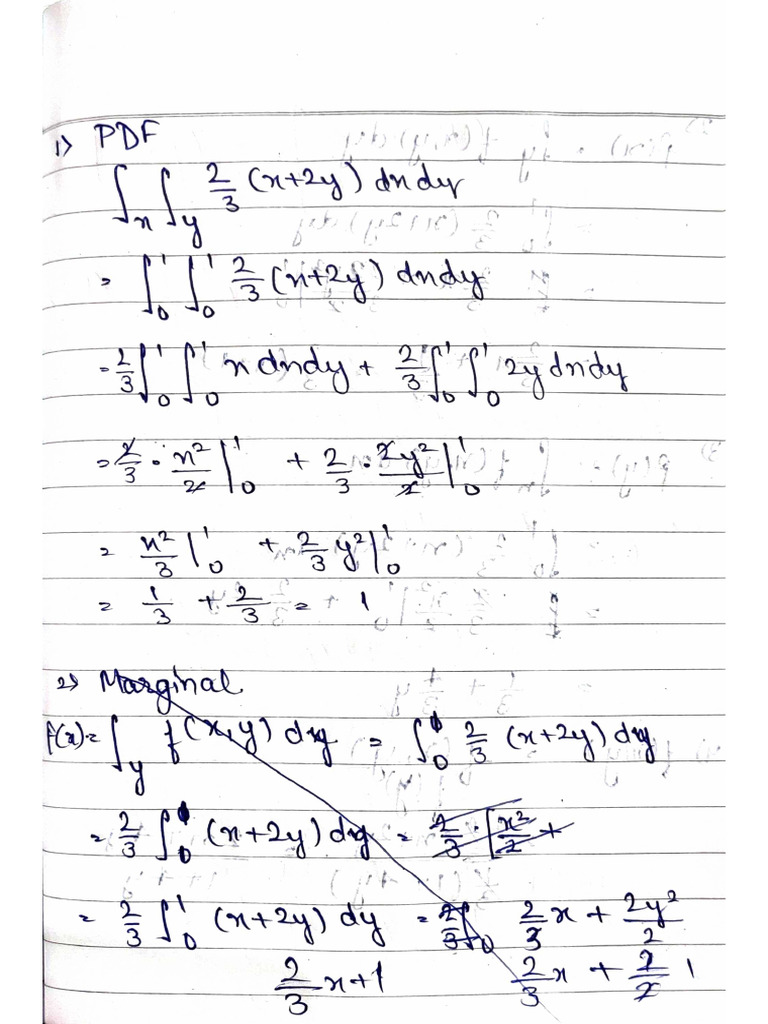 1) PDF
∫_x ∫_y 2/3 (x+2y) dxdy
= ∫_0^1 ∫_0^1 2/3 (x+2y) dxdy
= 2/3 ∫_0^1 ∫_0^1 x dxdy + 2/3 ∫_0^1 ∫_0^1 2y dxdy
= 2/3 · x²/2 |_0^1 + 2/3 · 2y²/2 |_0^1
= x²/3 |_0^1 + 2/3 y² |_0^1
= 1/3 + 2/3 = 1
2) Marginal
f(x) = ∫_y f(x,y) dy = ∫_0^1 2/3 (x+2y) dy
= 2/3 ∫_0^1 (x+2y) dy = 2/3 · [x²/2 +
= 2/3 ∫_0^1 (x+2y) dy = 2/3 x + 2y²/2
2/3 x+1 2/3 x + 2/2 1